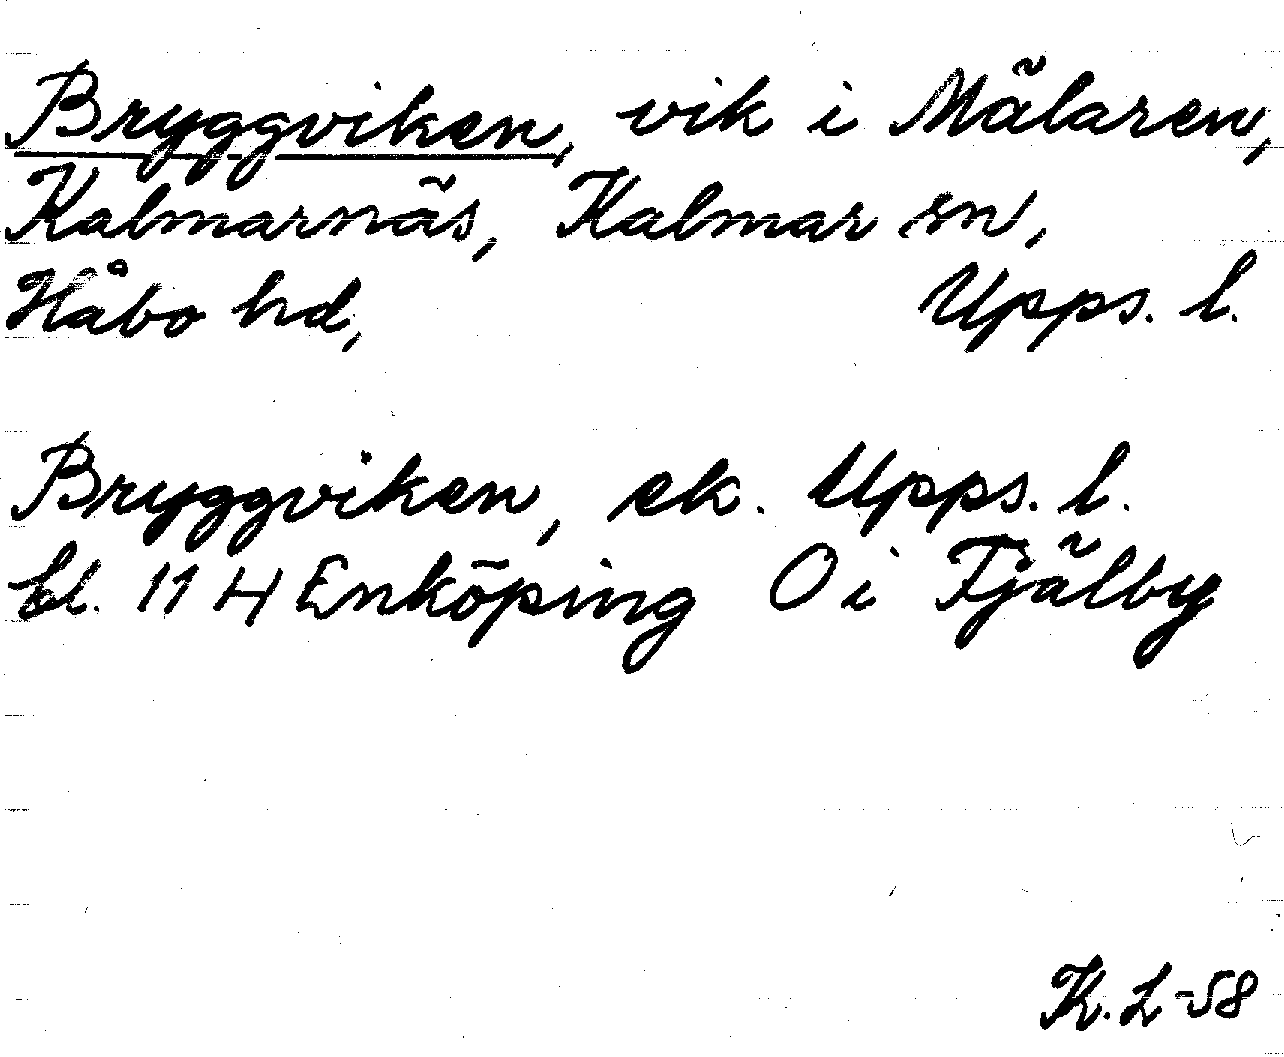 Bryggviken, vik i Mälaren,
Kalmarnäs, Kalmar sn,
Håbo hd, Upps. l.
Bryggviken, ek. Upps. l.
bl. 114 Enköping O i Tjälby
K. L-58